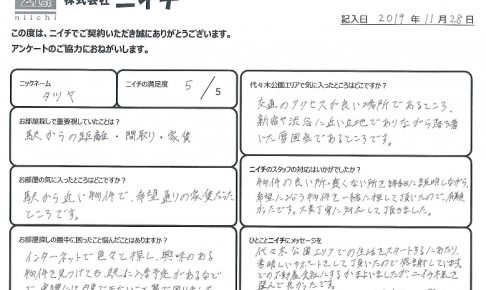 niichi
株式会社 ニイチ
記入日 2019年11月28日
この度は、ニイチでご契約いただき誠にありがとうございます。
アンケートのご協力におねがいします。
ニックネーム
タツヤ
ニイチの満足度
5/5
お部屋探しで重要視していることは?
駅からの距離・間取り・家賃
お部屋の気に入ったところはどこですか?
駅から近い物件で、希望通りの家賃だった
ところです。
お部屋探しの最中に困ったこと悩んだことはありますか?
インターネットで色々と探し、興味のある
物件を見つけても、既に入居予定があるなど
代々木公園エリアで気に入ったところはどこですか?
交通のアクセスが良い場所であるところ、
新宿や渋谷に近い立地でありながら落ち着
いた雰囲気であるところです。
ニイチのスタッフの対応はいかがでしたか?
物件の良い所・悪くない所を説明しながら、
希望にそう物件を一緒に探して頂いたので、
かったです。大変丁寧に対応して頂きました。
ひとことニイチにメッセージを
代々木公園エリアでの生活をスタートするにあたり、
素晴しいサポートをして頂いたので感謝しています
ニイチ
選んで良かったです。